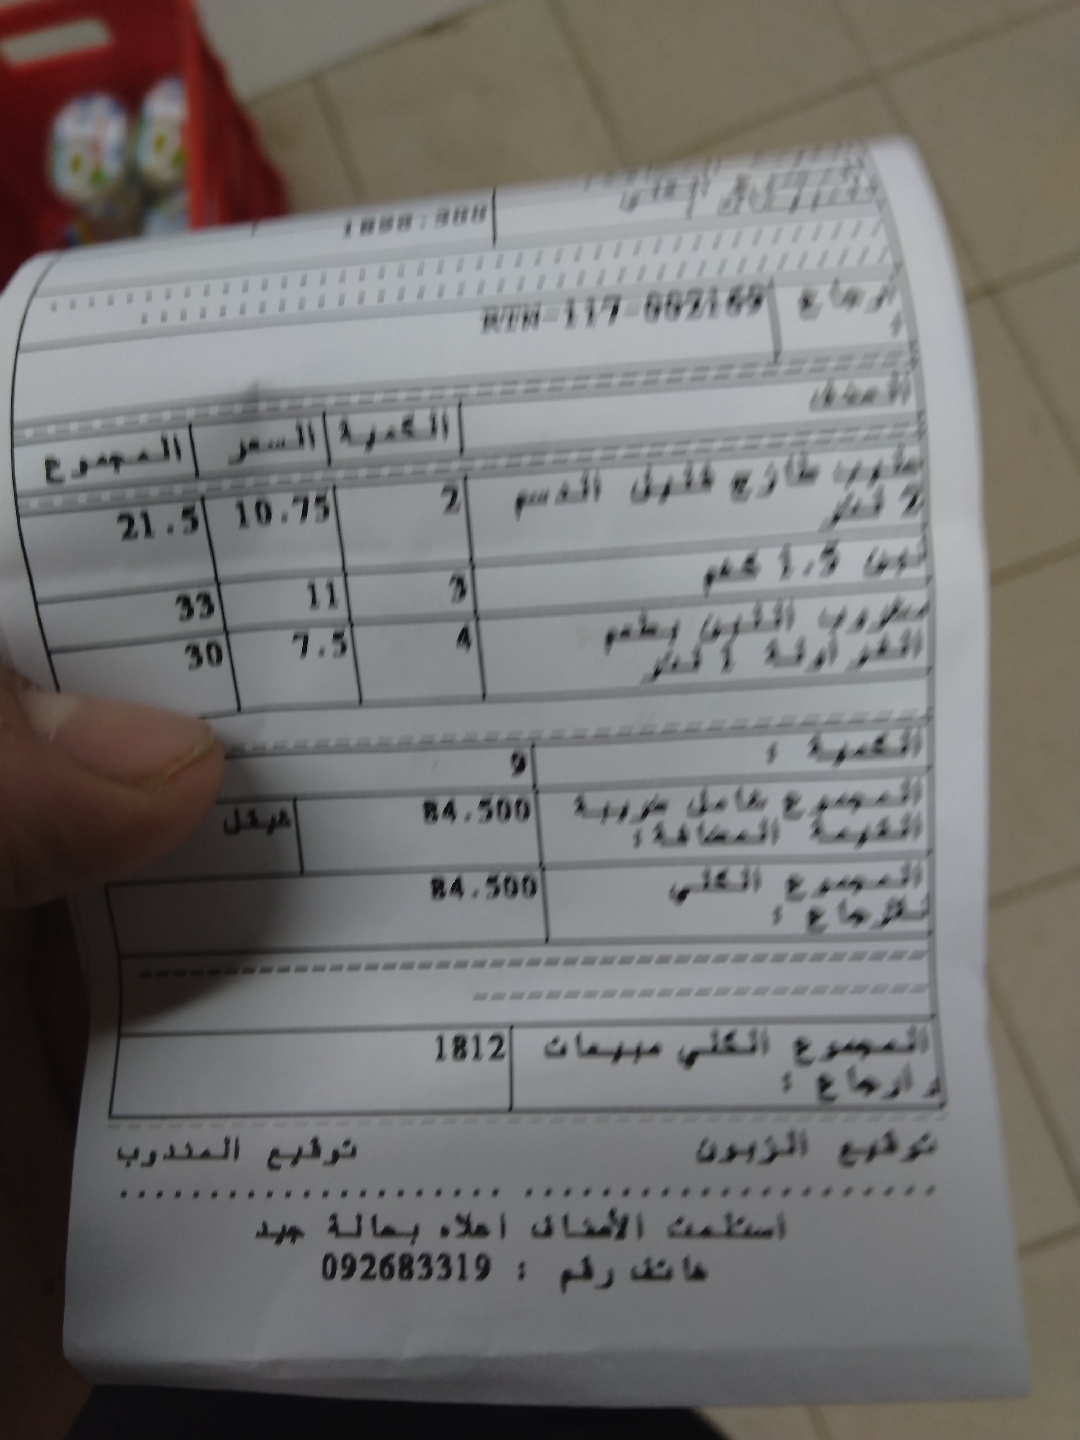 إرجاع : RTN-117-002169
الصنف الكمية السعر المجموع
حليب طازج قليل الدسم 2 10.75 21.5
2 لتر
لبن 1.5 كغم 3 11 33
مشروب اللبن بطعم 4 7.5 30
الفراولة 1 لتر
الكمية : 9
المجموع شامل ضريبة 84.500 شيقل
القيمة المضافة :
المجموع الكلي 84.500
للإرجاع :
المجموع الكلي مبيعات 1812
و ارجاع :
توقيع الزبون توقيع المندوب
استلمت الأصناف اعلاه بحالة جيد
هاتف رقم : 092683319